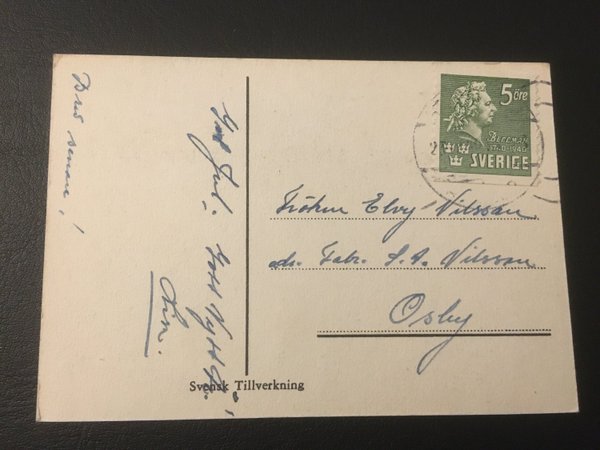 Brev senare!
God Jul.
Gott Nytt År!
5 öre
BELLMAN
1740-1940
SVERIGE
Fröken Elvy Nilsson
adr. Fabr. S. A. Nilsson
Osby
Svensk Tillverkning